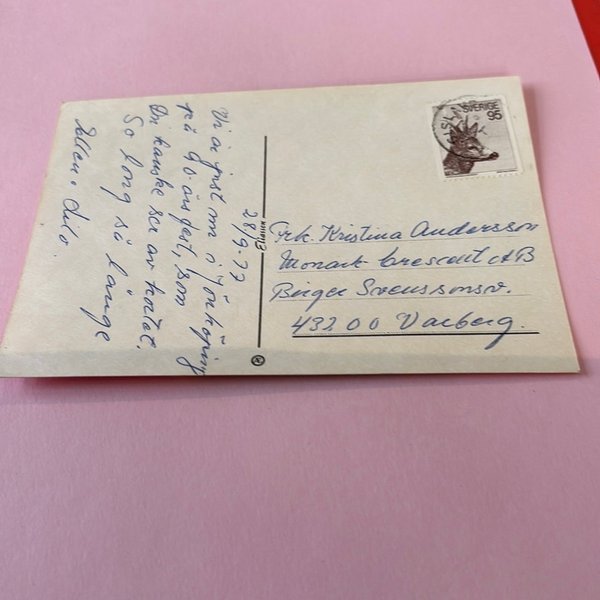 28/9-77
Vi är just nu i Jönköping
på 90-års fest, som
Du kanske ser av kortet.
So long så länge
Eliasson
SVERIGE
95
Frk. Kristina Andersson
Monark Crescent AB
Birger Svenssonsv.
432 00 Varberg.